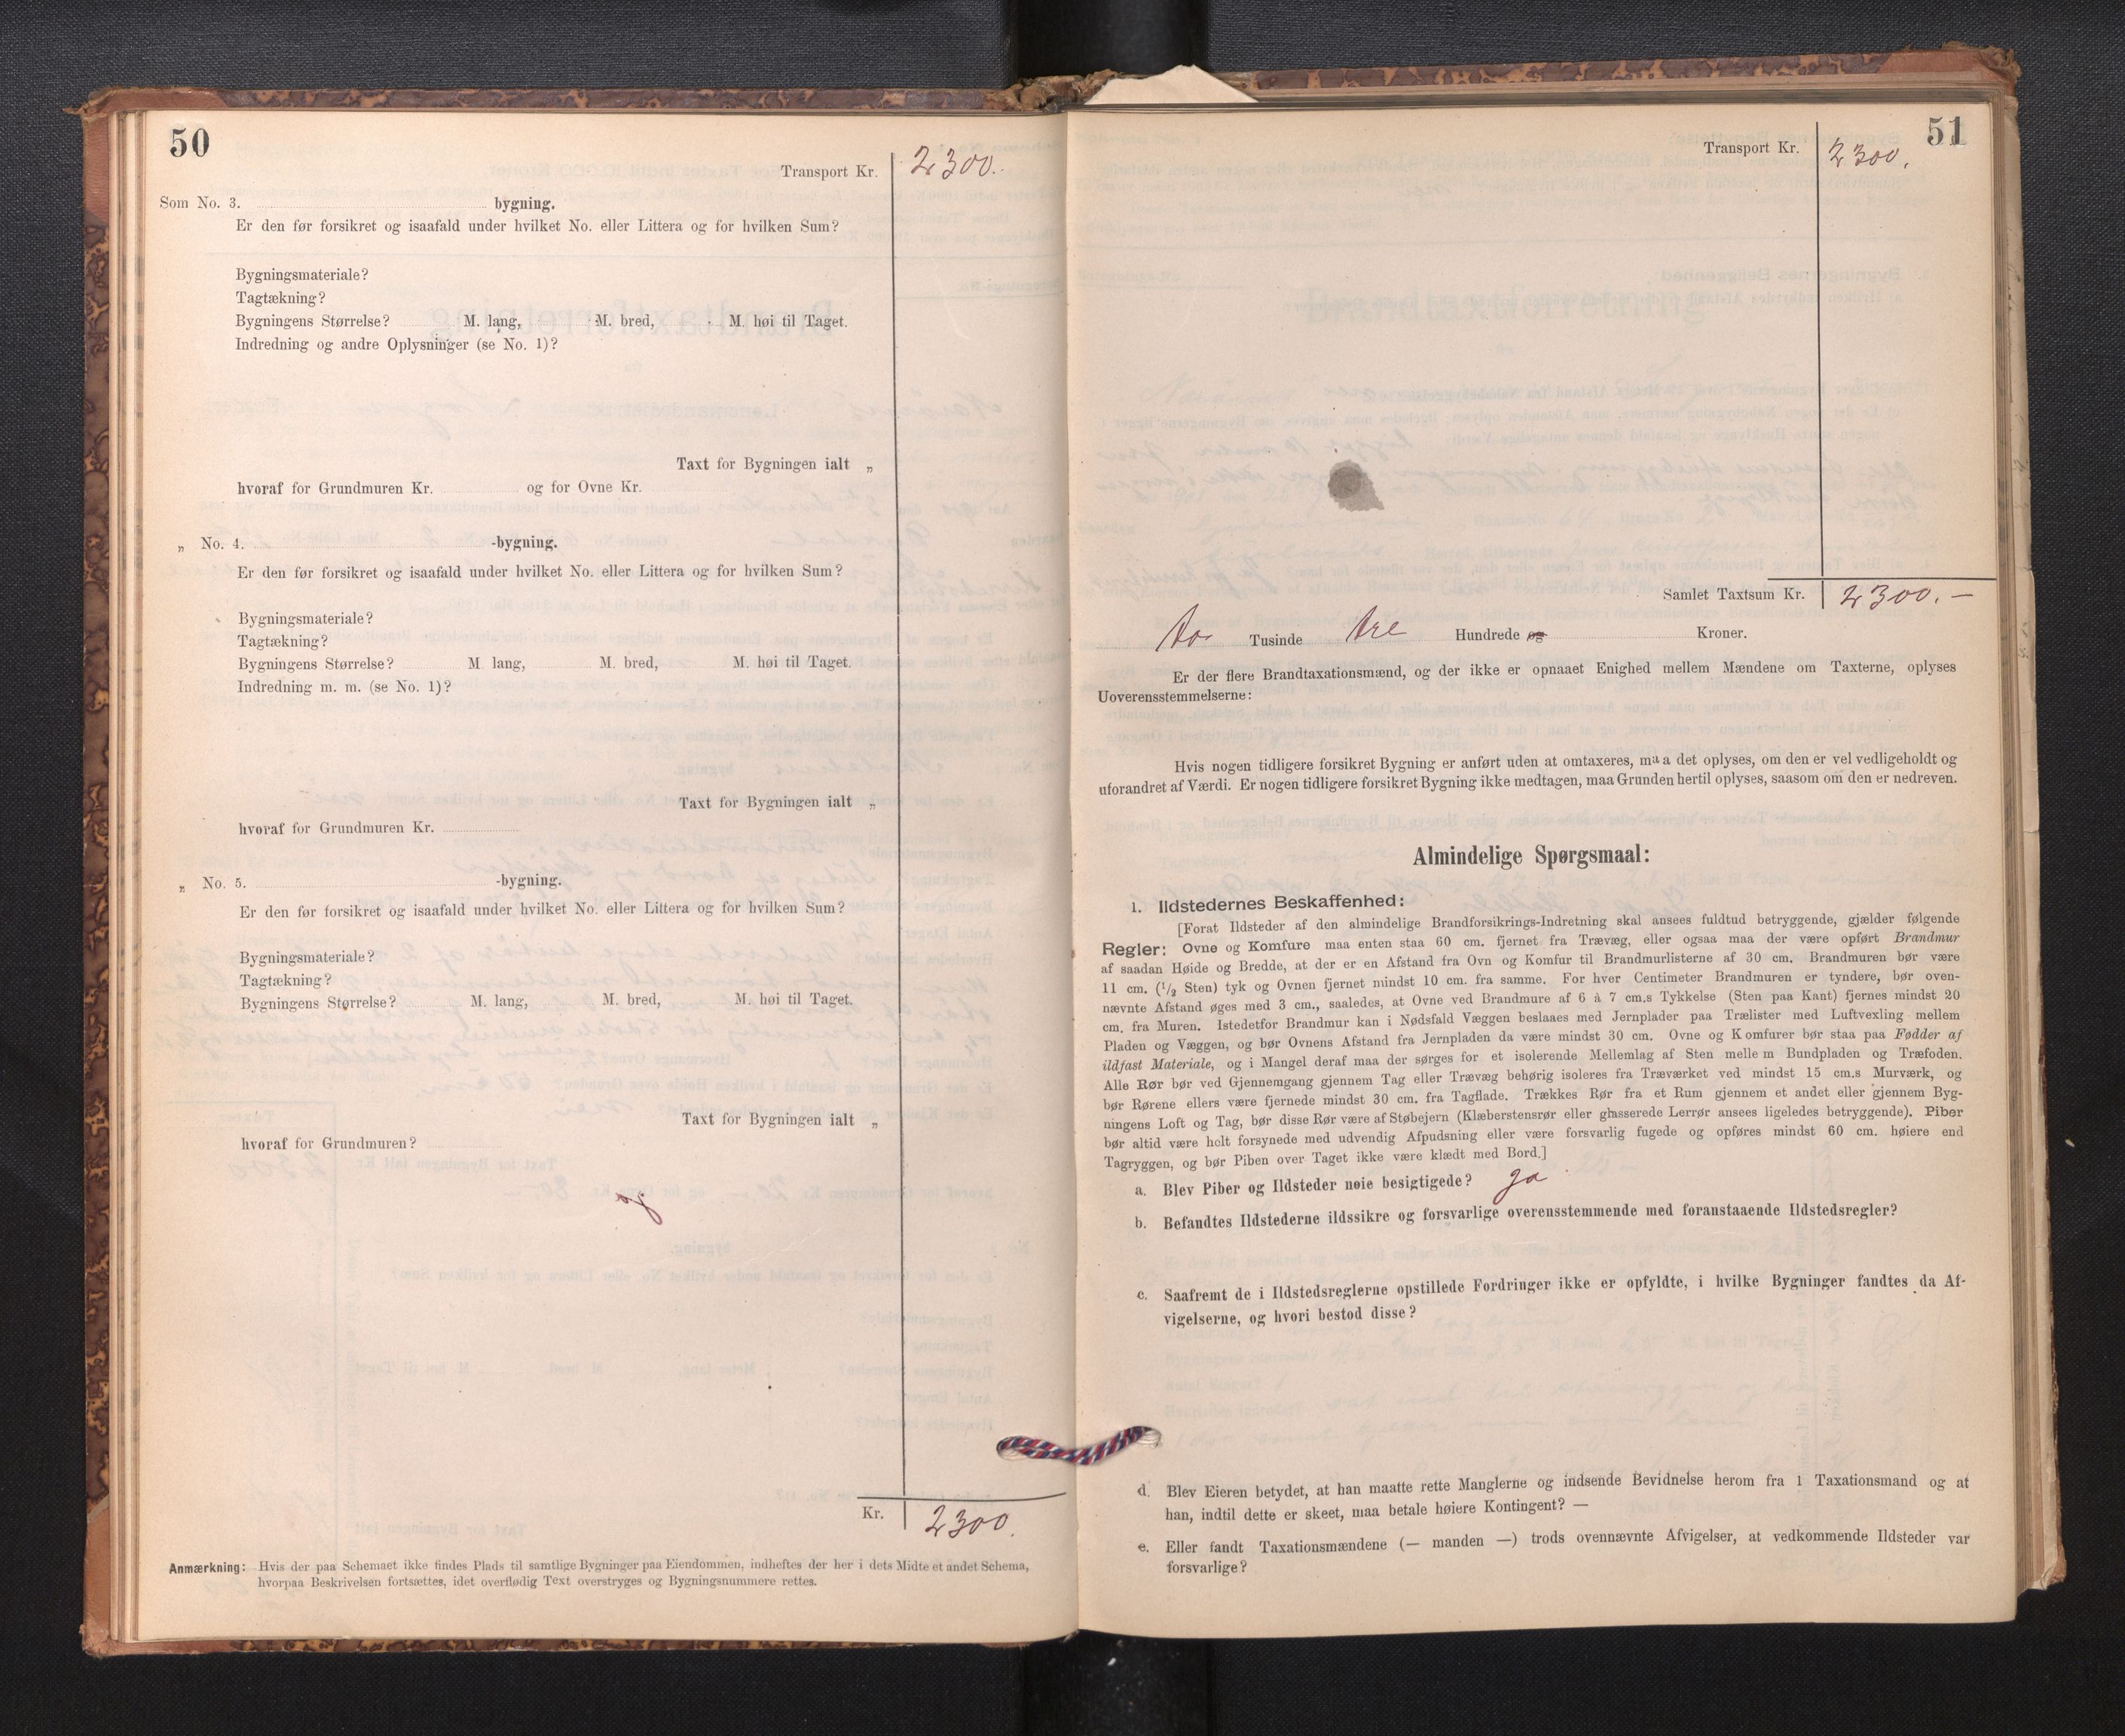 50
Transport Kr. 2300.
Som No. 3. bygning.
Er den før forsikret og isaafald under hvilket No. eller Littera og for hvilken Sum?
Bygningsmateriale?
Tagtækning?
Bygningens Størrelse? M. lang, M. bred, M. høi til Taget.
Indredning og andre Oplysninger (se No. 1)?
Taxt for Bygningen ialt „
hvoraf for Grundmuren Kr. og for Ovne Kr.
„ No. 4. -bygning.
Er den før forsikret og isaafald under hvilket No. eller Littera og for hvilken Sum?
Bygningsmateriale?
Tagtækning?
Bygningens Størrelse? M. lang, M. bred, M. høi til Taget.
Indredning m. m. (se No. 1)?
Taxt for Bygningen ialt „
hvoraf for Grundmuren Kr.
„ No. 5. -bygning.
Er den før forsikret og isaafald under hvilket No. eller Littera og for hvilken Sum?
Bygningsmateriale?
Tagtækning?
Bygningens Størrelse? M. lang, M. bred, M. høi til Taget.
Taxt for Bygningen ialt „
hvoraf for Grundmuren?
Kr. 2300.
Anmærkning: Hvis der paa Schemaet ikke findes Plads til samtlige Bygninger paa Eiendommen, indheftes der her i dets Midte et andet Schema,
hvorpaa Beskrivelsen fortsættes, idet overflødig Text overstryges og Bygningsnummere rettes.
51
Transport Kr. 2300.
Samlet Taxtsum Kr. 2300.—
to Tusinde tre Hundrede og Kroner.
Er der flere Brandtaxationsmænd, og der ikke er opnaaet Enighed mellem Mændene om Taxterne, oplyses
Uoverensstemmelserne:
Hvis nogen tidligere forsikret Bygning er anført uden at omtaxeres, maa det oplyses, om den er vel vedligeholdt og
uforandret af Værdi. Er nogen tidligere forsikret Bygning ikke medtagen, maa Grunden hertil oplyses, saasom om den er nedreven.
Almindelige Spørgsmaal:
1. Ildstedernes Beskaffenhed:
[Forat Ildsteder af den almindelige Brandforsikrings-Indretning skal ansees fuldtud betryggende, gjælder følgende
Regler: Ovne og Komfure maa enten staa 60 cm. fjernet fra Trævæg, eller ogsaa maa der være opført Brandmur
af saadan Høide og Bredde, at der er en Afstand fra Ovn og Komfur til Brandmurlisterne af 30 cm. Brandmuren bør være
11 cm. (1/2 Sten) tyk og Ovnen fjernet mindst 10 cm. fra samme. For hver Centimeter Brandmuren er tyndere, bør oven-
nævnte Afstand øges med 3 cm., saaledes, at Ovne ved Brandmure af 6 à 7 cm.s Tykkelse (Sten paa Kant) fjernes mindst 20
cm. fra Muren. Istedetfor Brandmur kan i Nødsfald Væggen beslaaes med Jernplader paa Trælister med Luftvexling mellem
Pladen og Væggen, og bør Ovnens Afstand fra Jernpladen da være mindst 30 cm. Ovne og Komfurer bør staa paa Fødder af
ildfast Materiale, og i Mangel deraf maa der sørges for et isolerende Mellemlag af Sten mellem Bundpladen og Træfoden.
Alle Rør bør ved Gjennemgang gjennem Tag eller Trævæg behørig isoleres fra Træværket ved mindst 15 cm.s Murværk, og
bør Rørene ellers være fjernede mindst 30 cm. fra Tagflade. Trækkes Rør fra et Rum gjennem et andet eller gjennem Byg-
ningens Loft og Tag, bør disse Rør være af Støbejern (Klæberstensrør eller glasserede Lerrør ansees ligeledes betryggende). Piber
bør altid være helt forsynede med udvendig Afpudsning eller være forsvarlig fugede og opføres mindst 60 cm. høiere end
Tagryggen, og bør Piben over Taget ikke være klædt med Bord.]
a. Blev Piber og Ildsteder nøie besigtigede? ja
b. Befandtes Ildstederne ildssikre og forsvarlige overensstemmende med foranstaaende Ildstedsregler?
c. Saafremt de i Ildstedsreglerne opstillede Fordringer ikke er opfyldte, i hvilke Bygninger fandtes da Af-
vigelserne, og hvori bestod disse?
d. Blev Eieren betydet, at han maatte rette Manglerne og indsende Bevidnelse herom fra 1 Taxationsmand og at
han, indtil dette er skeet, maa betale høiere Kontingent? —
e. Eller fandt Taxationsmændene (— manden —) trods ovennævnte Afvigelser, at vedkommende Ildsteder var
forsvarlige?